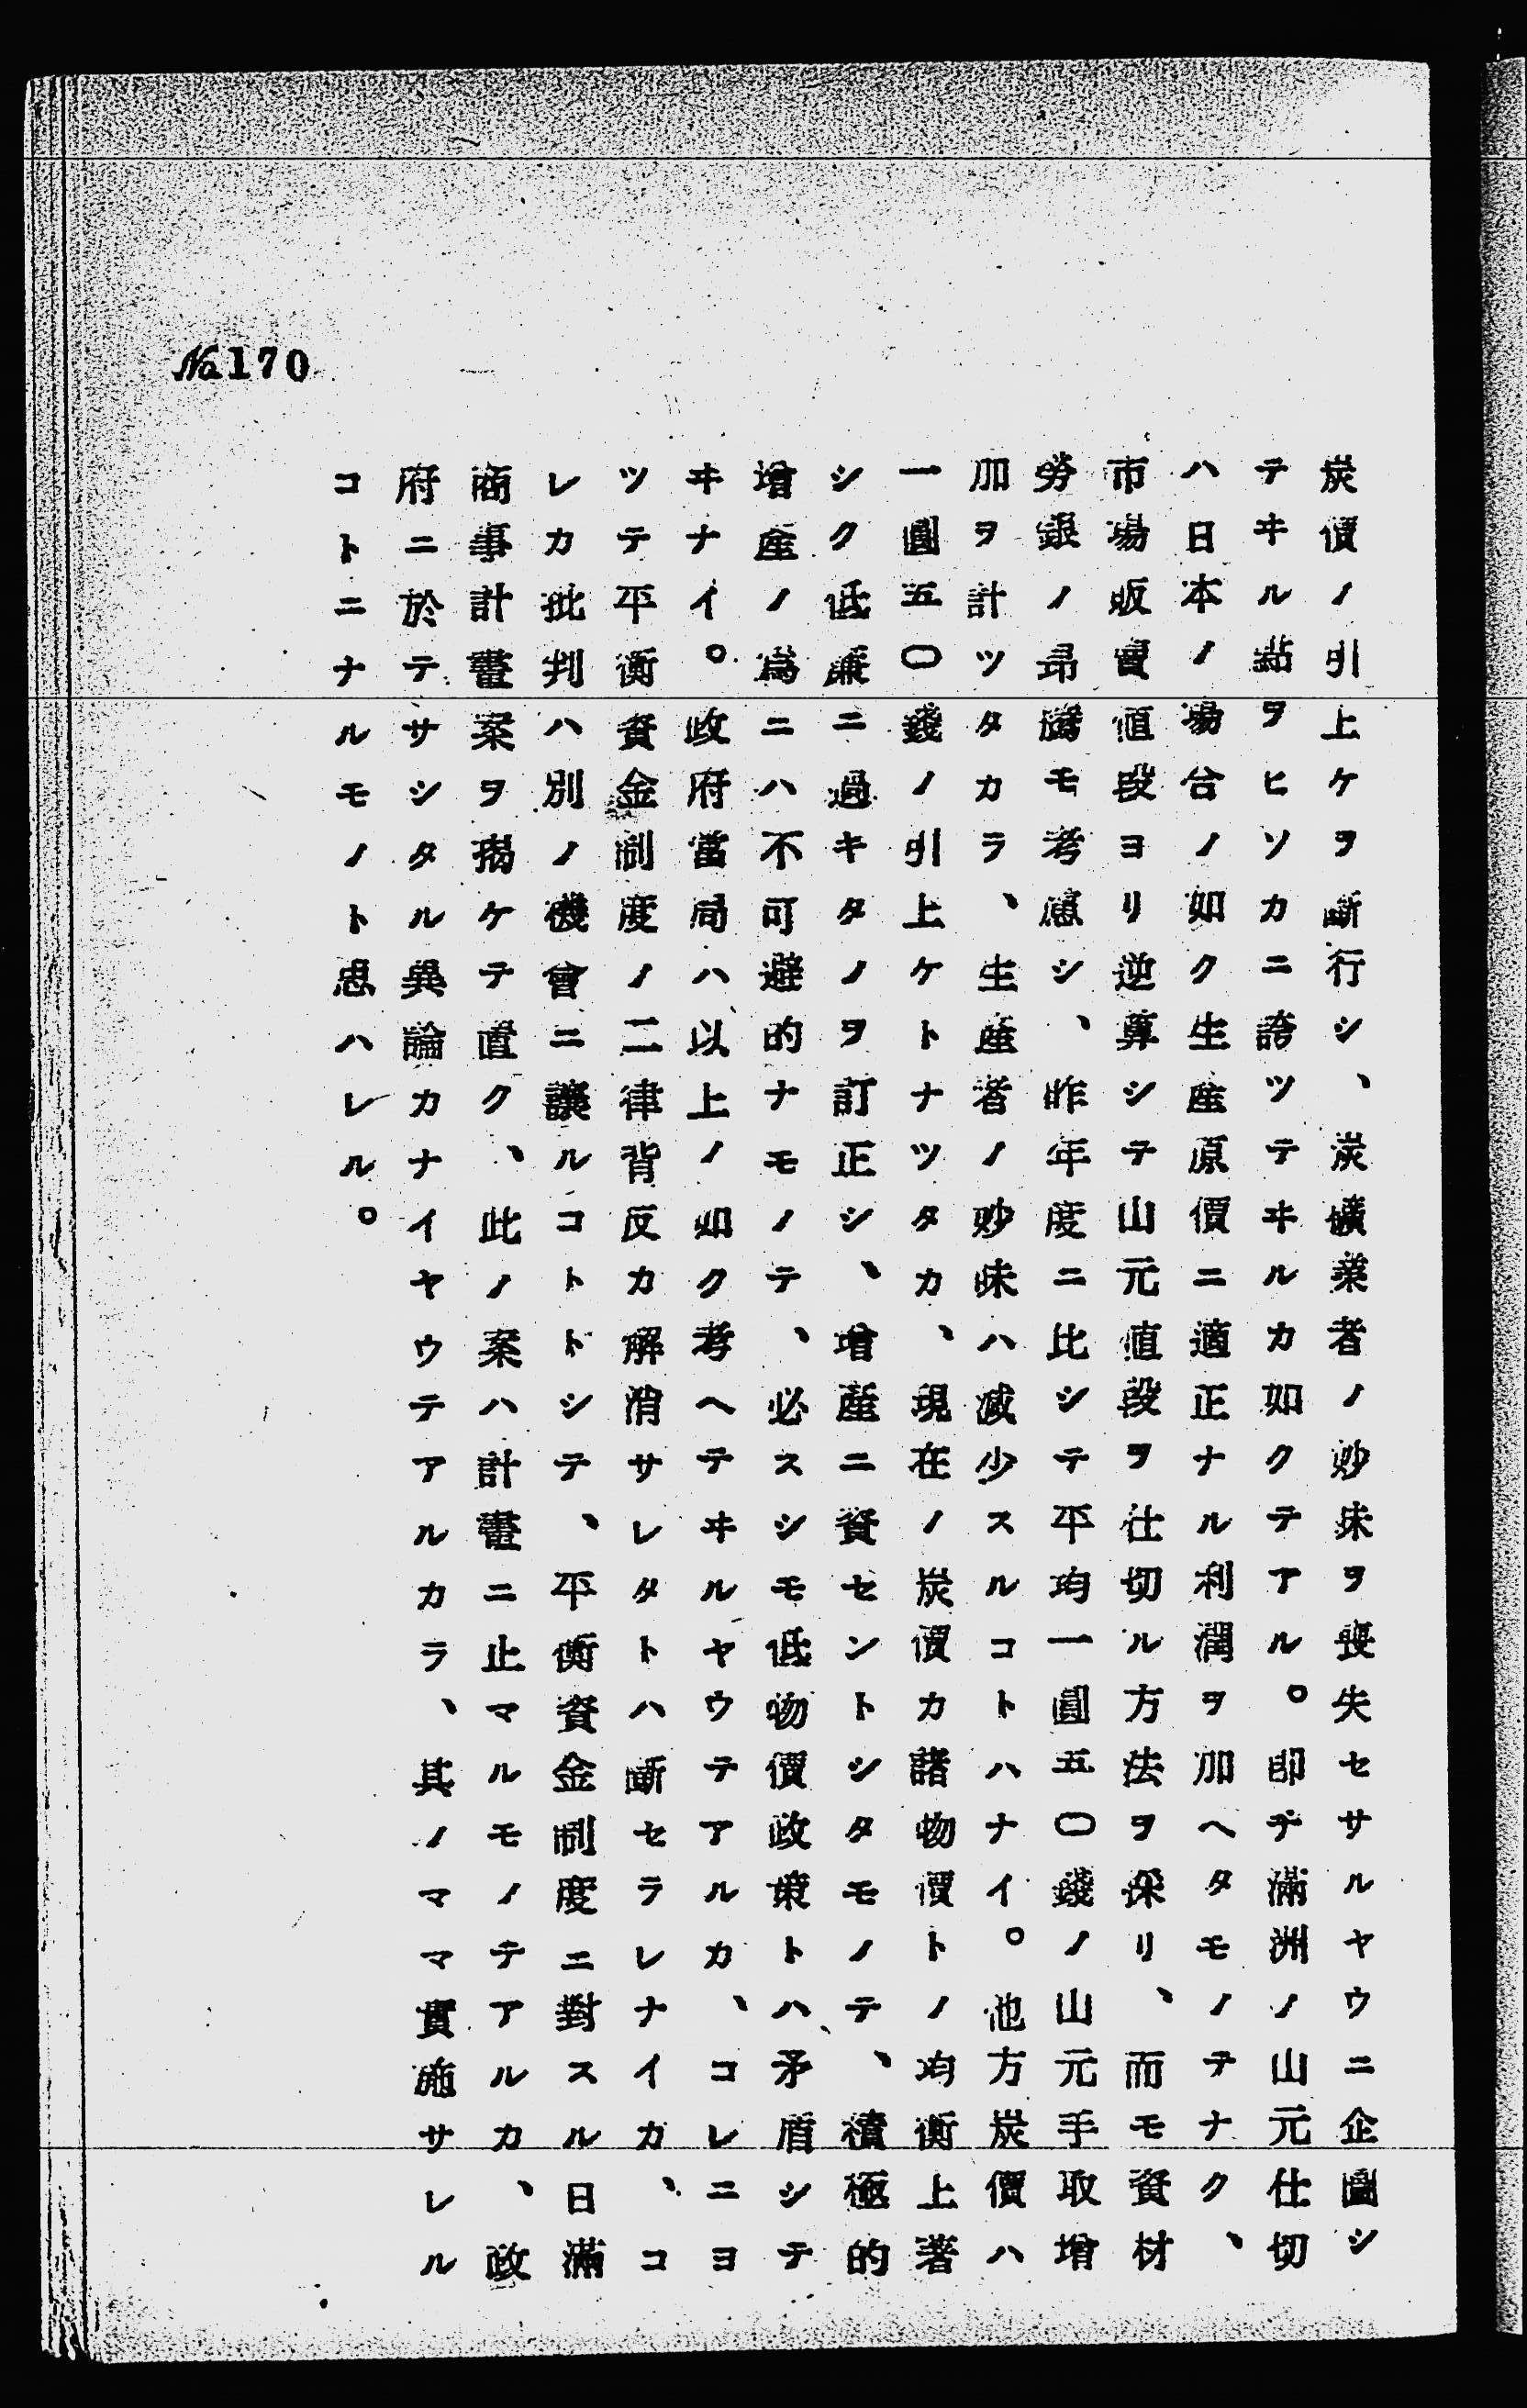 炭價ノ引上ケヲ斷行シ、炭礦業者ノ妙味ヲ喪失セサルヤウニ企圖シ
テヰル點ヲヒソカニ誇ツテヰルカ如クテアル。卽チ滿洲ノ山元仕切
ハ日本ノ場合ノ如ク生產原價ニ適正ナル利潤ヲ加ヘタモノテナク、
市場販賣値段ヨリ逆算シテ山元値段ヲ仕切ル方法ヲ採リ、而モ資材
勞銀ノ昻騰モ考慮シ、昨年度ニ比シテ平均一圓五〇錢ノ山元手取增
加ヲ計ツタカラ、生產者ノ妙味ハ減少スルコトハナイ。他方炭價ハ
一圓五〇錢ノ引上ケトナツタカ、現在ノ炭價カ諸物價トノ均衡上著
シク低廉ニ過キタノヲ訂正シ、增產ニ資セントシタモノテ、積極的
增產ノ爲ニハ不可避的ナモノテ、必スシモ低物價政策トハ矛盾シテ
ヰナイ。政府當局ハ以上ノ如ク考ヘテヰルヤウテアルカ、コレニヨ
ツテ平衡資金制度ノ二律背反カ解消サレタトハ斷セラレナイカ、コ
レカ批判ハ別ノ機會ニ讓ルコトトシテ、平衡資金制度ニ對スル日滿
商事計畫案ヲ揭ケテ置ク、此ノ案ハ計畫ニ止マルモノテアルカ、政
府ニ於テサシタル異論カナイヤウテアルカラ、其ノママ實施サレル
コトニナルモノト思ハレル。
№170